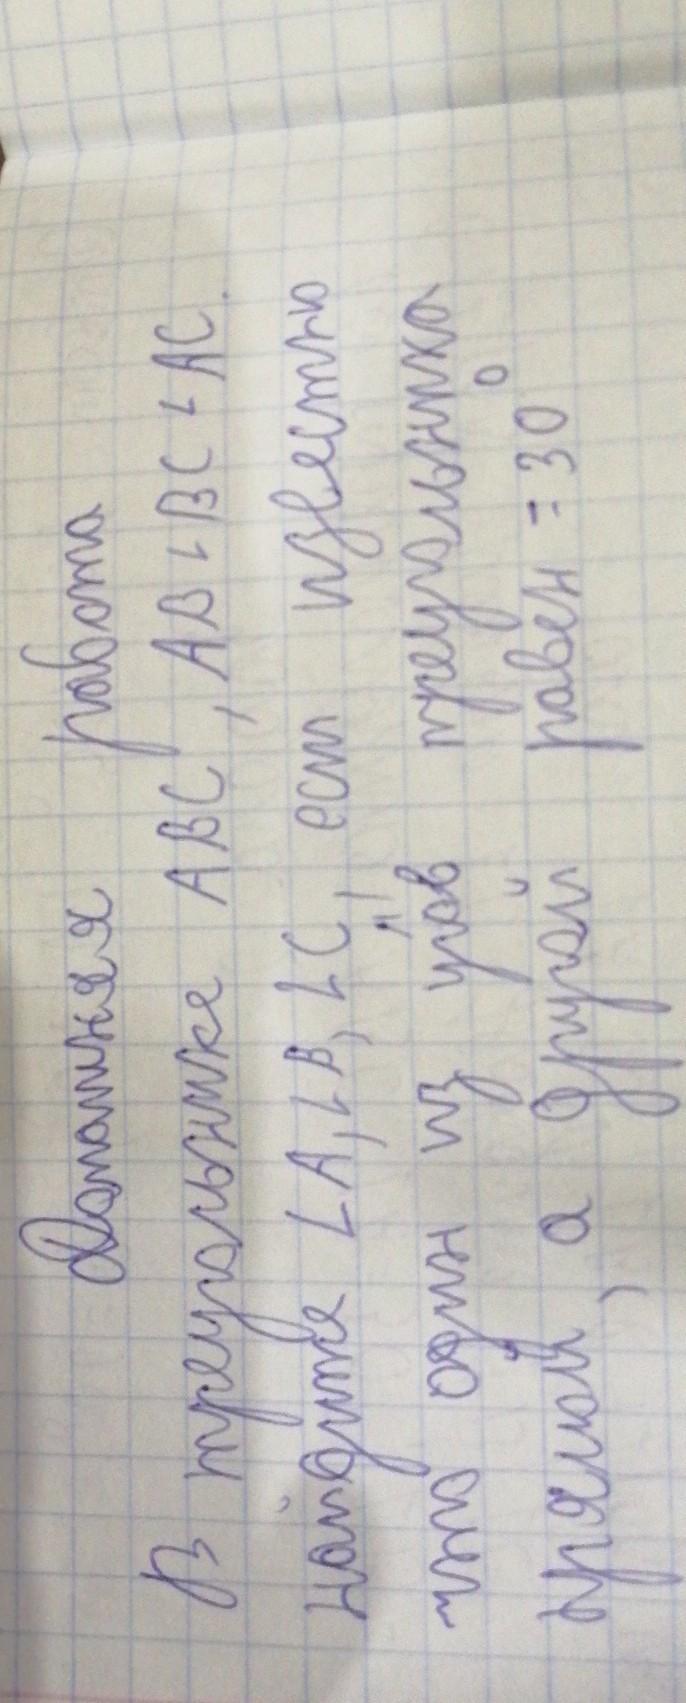 Домашняя работа
В треугольнике ABC, AB < BC < AC.
найдите ∠A, ∠B, ∠C, есл известно
что один из углов треугольника
прямой, а другой равен = 30°